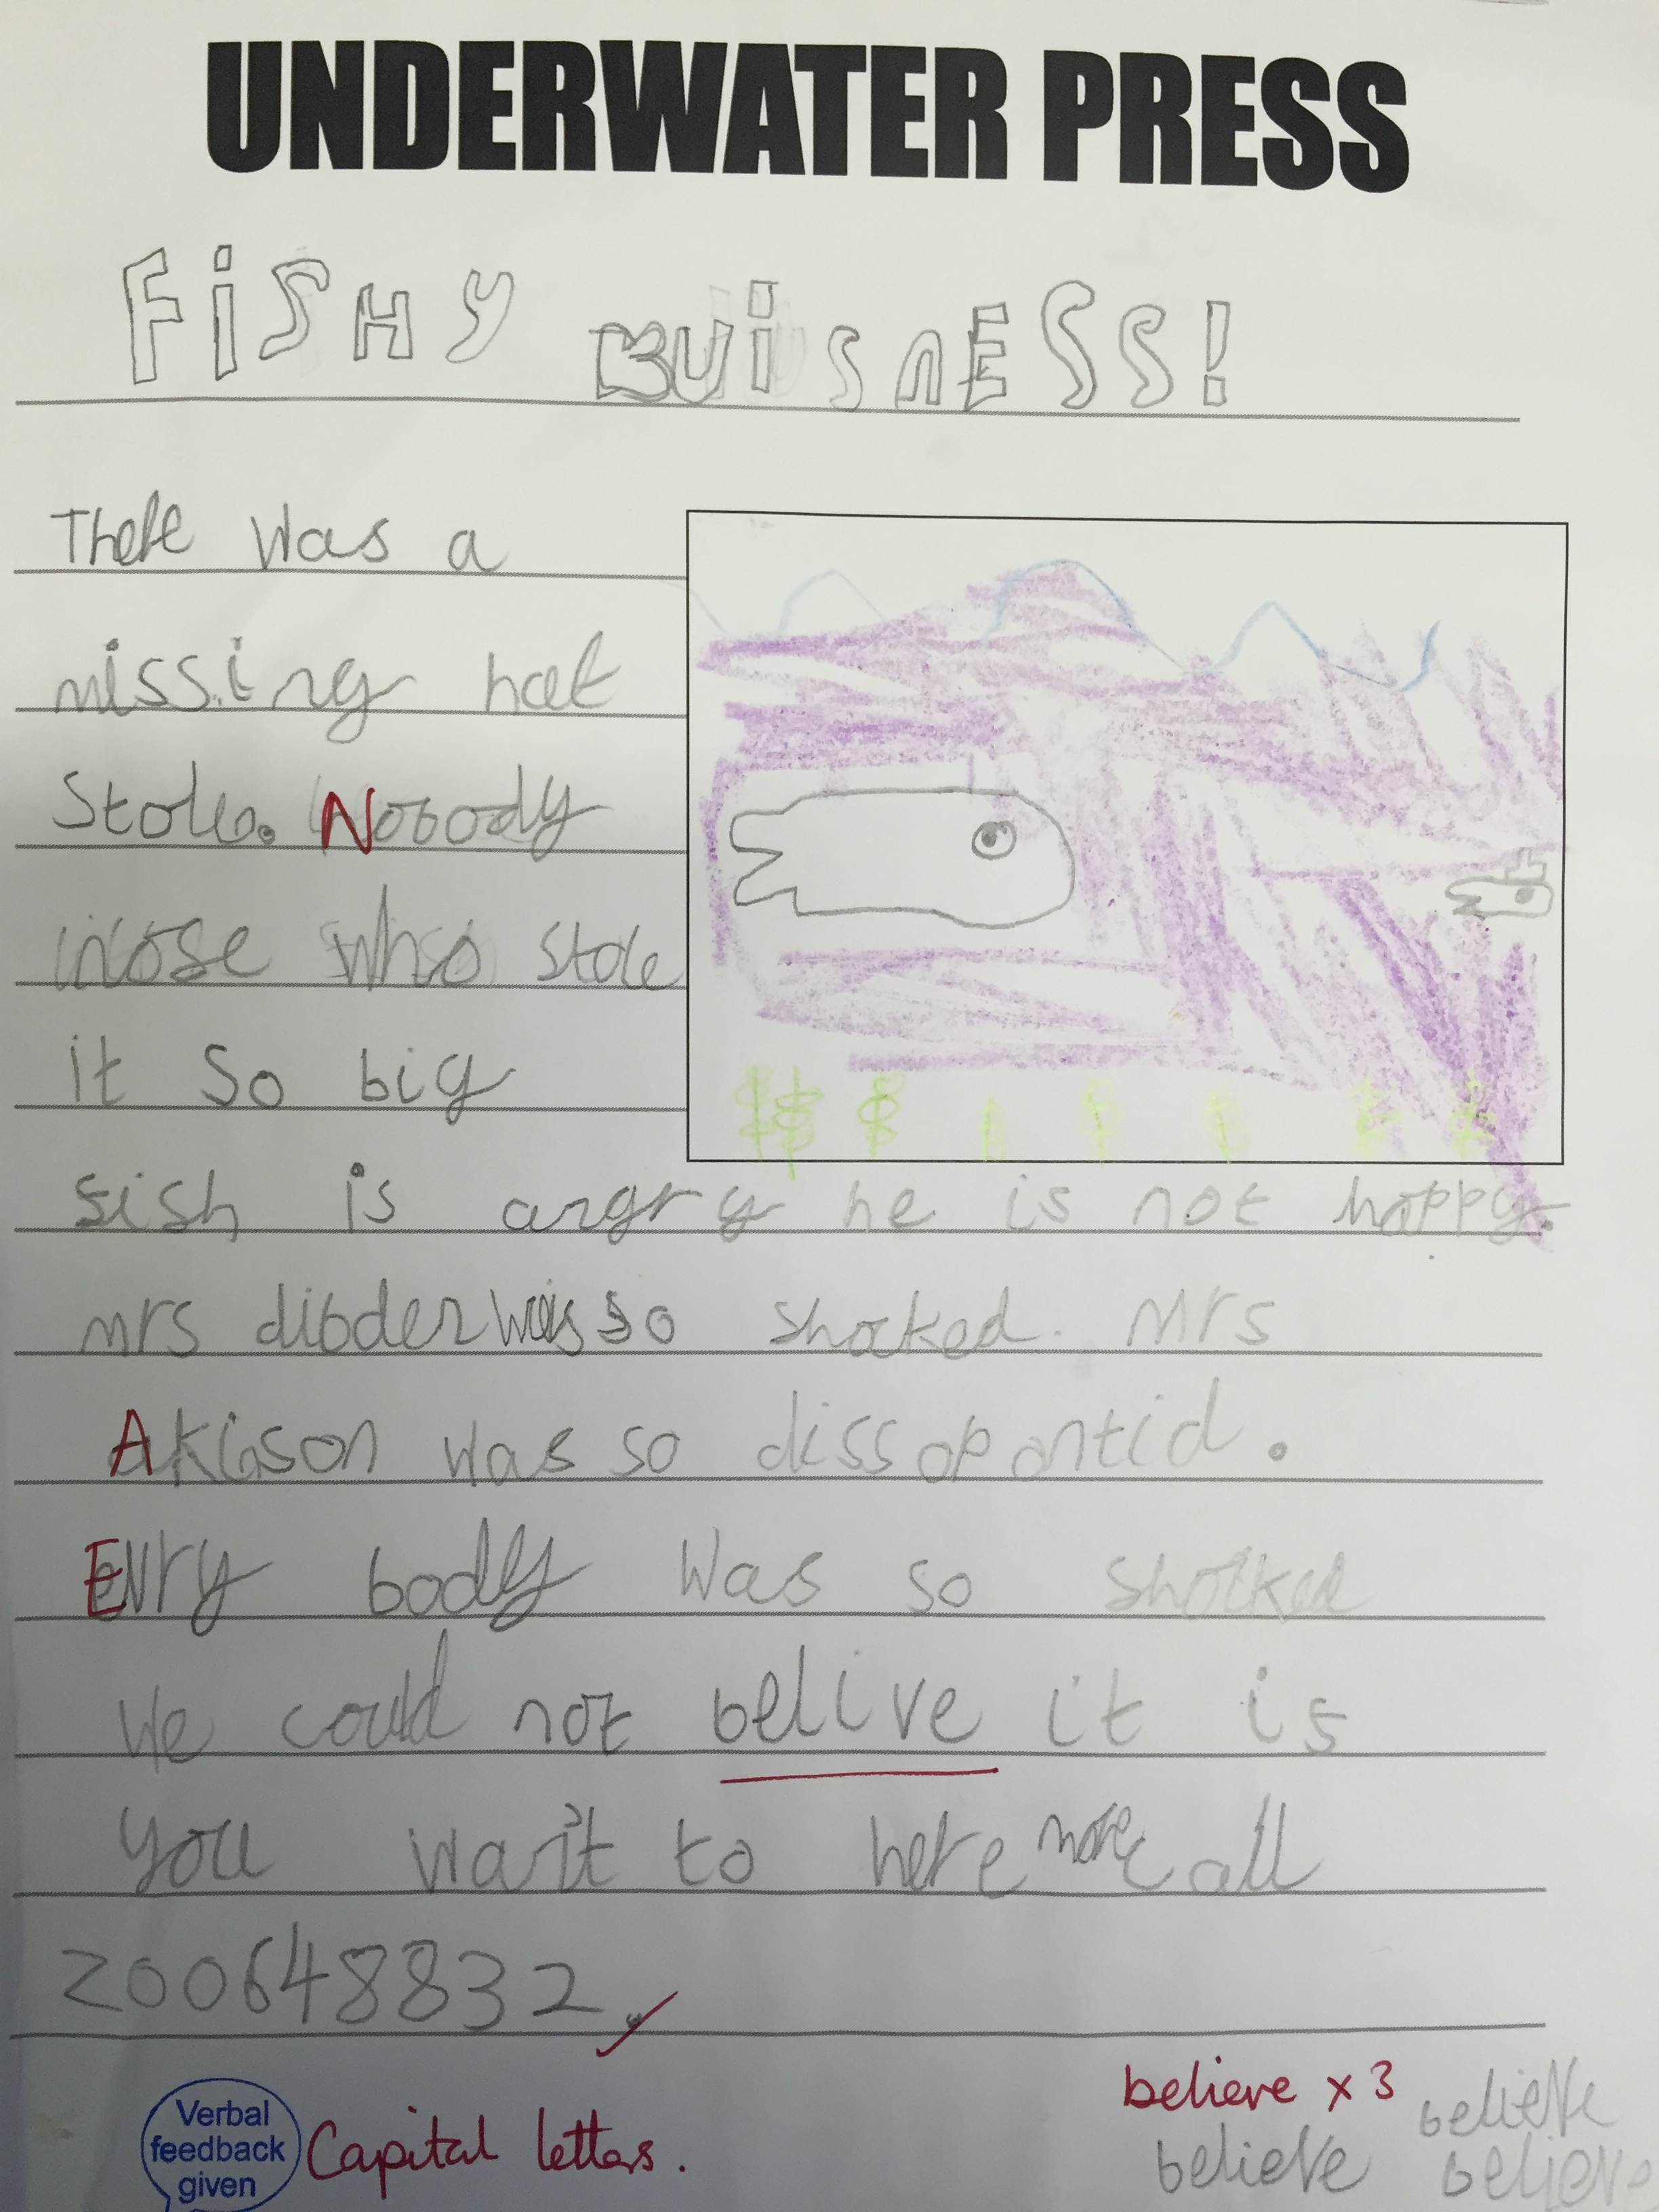 UNDERWATER PRESS
FiSHY BUisnESS!
There was a
missing hat
Stole. Nobody
who stole
it so big
fish is angry he is not happy.
mrs dibder was so shocked. Mrs
Akison was so dissopontid.
Evry body was so shocked
We could not belive it is
you want to here more call
200648832.
believe x 3 believe
Verbal
feedback
given
Capital letters.
believe believe